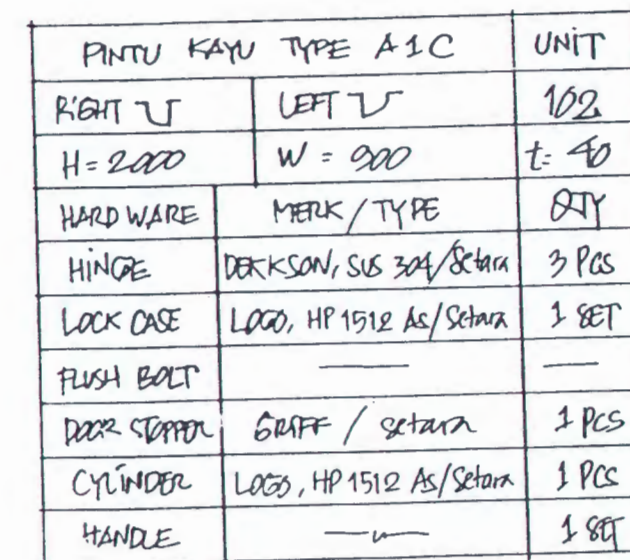 PINTU KAYU TYPE A1C UNIT
RIGHT LEFT 102
H = 2000 W = 900 t = 40
HARD WARE MERK / TYPE QTY
HINGE DEKKSON, SUS 304/Setara 3 PCS
LOCK CASE LOGO, HP 1512 As/Setara 1 SET
FLUSH BOLT — —
DOOR STOPPER GRIFF / setara 1 PCS
CYLINDER LOGO, HP 1512 As/Setara 1 PCS
HANDLE —〃— 1 SET